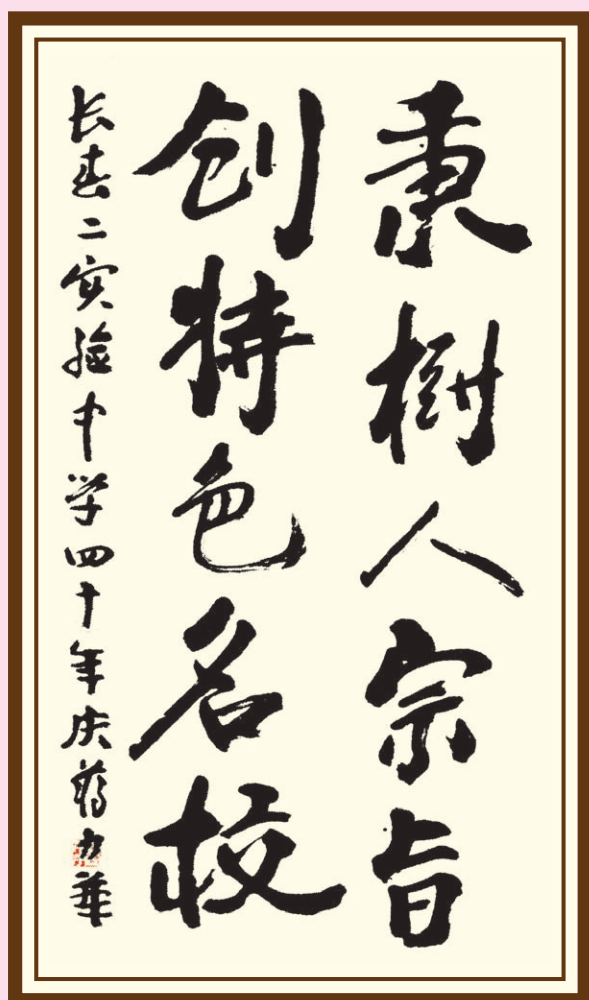 秉树人宗旨
创特色名校
长春二实验中学四十年庆蒋力华